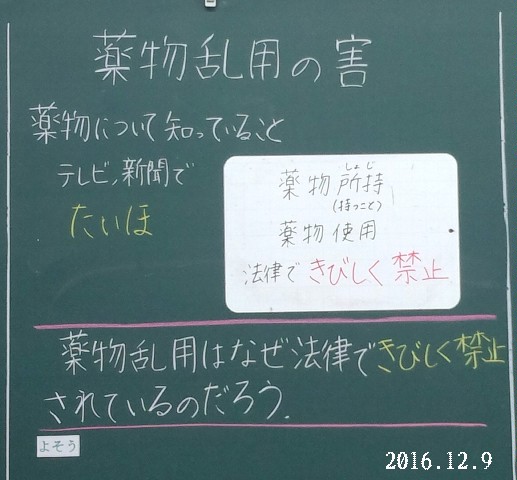 薬物乱用の害
薬物について知っていること
テレビ、新聞で
たいほ
しょじ
薬物所持
(持つこと)
薬物使用
法律できびしく禁止
薬物乱用はなぜ法律できびしく禁止
されているのだろう.
よそう
2016.12.9